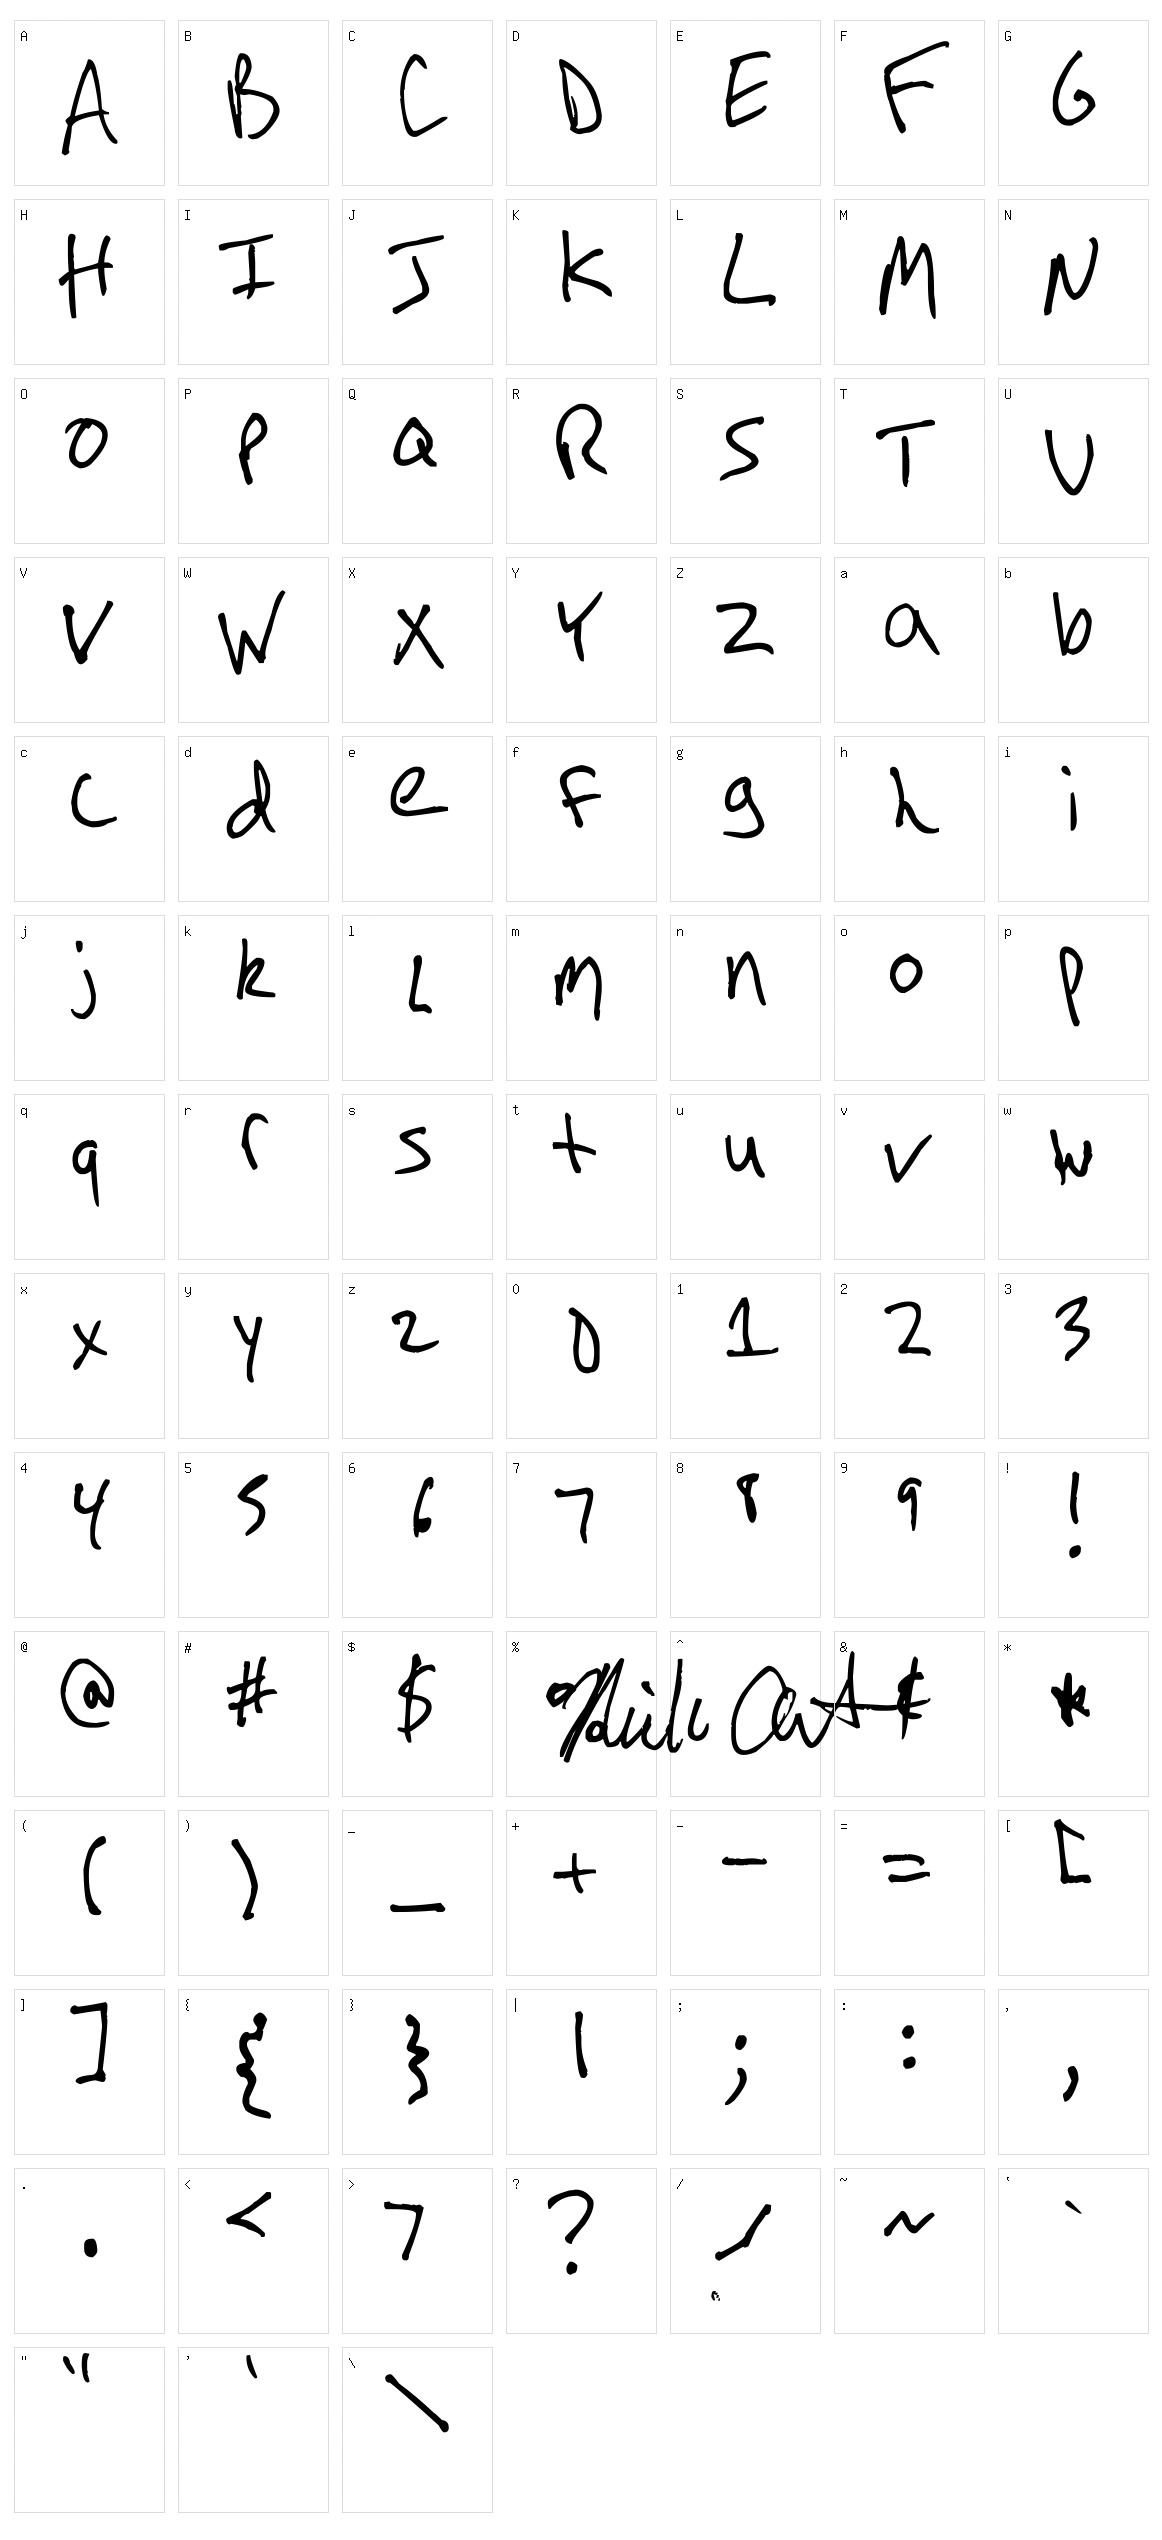 A B C D E F G
A B C D E F G
H I J K L M N
H I J K L M N
O P Q R S T U
O P Q R S T U
V W X Y Z a b
V W X Y Z a b
c d e f g h i
c d e f g h i
j k l m n o p
j k l m n o p
q r s t u v w
q r s t u v w
x y z 0 1 2 3
x y z 0 1 2 3
4 5 6 7 8 9 !
4 5 6 7 8 9 !
@ # $ % ^ & *
@ # $ *
( ) _ + - = [
( ) _ + - = [
] { } | ; : ,
] { } | ; : ,
. < > ? / ~ `
. < > ? / ~ `
" ' \
" ' \